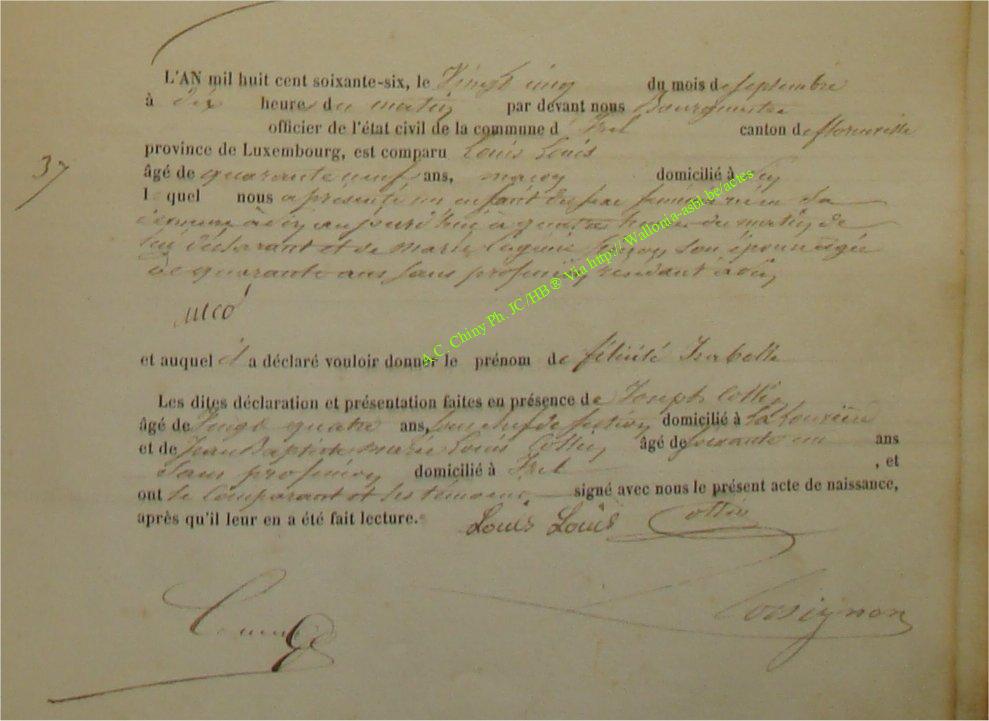 L'AN mil huit cent soixante-six, le Vingt cinq du mois de septembre
à dix heures du matin par devant nous Bourgmestre
officier de l'état civil de la commune d'Izel canton de florenville
37
province de Luxembourg, est comparu Louis Louis
âgé de quarante neuf ans, maçon domicilié à
Lequel nous a présenté un enfant du sexe féminin né
aujourd'hui à quatre heures du matin de
lui déclarant et de Marie son épouse âgée
de quarante ans sans profession résidant à
et auquel il a déclaré vouloir donner le prénom de félicité Isabelle
Les dites déclaration et présentation faites en présence de Joseph Collin
âgé de Vingt quatre ans, domicilié à La Louvière
et de Jean Baptiste Marie Louis Collin âgé de soixante un ans
Sans profession domicilié à Izel , et
ont le comparant et les témoins signé avec nous le présent acte de naissance,
après qu'il leur en a été fait lecture.
Louis Louis Collin
Corsignon
A.C. Chiny Ph. JC/HB® Via http://Wallonia-asbl.be/actes